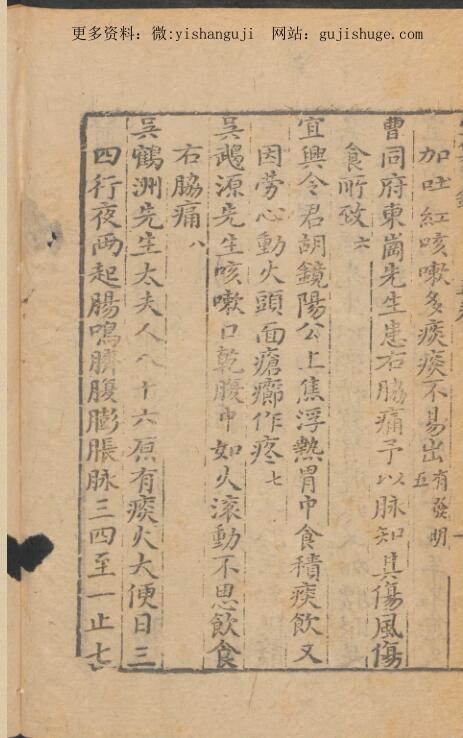 更多资料：微:yishanguji 网站：gujishuge.com
加吐紅咳嗽多痰痰不易出有發明五
曹同府東崗先生患右脇痛予以脉知其傷風傷
食所致六
宜興令君胡鏡陽公上焦浮熱胃中食積痰飲又
因勞心動火頭面瘡癤作疼七
吳源先生咳嗽口乾腹中如火滾動不思飲食
右脇痛八
吳鶴洲先生太夫人八十六原有痰火大便日三
四行夜兩起腸鳴臍腹膨脹脉三四至一止七